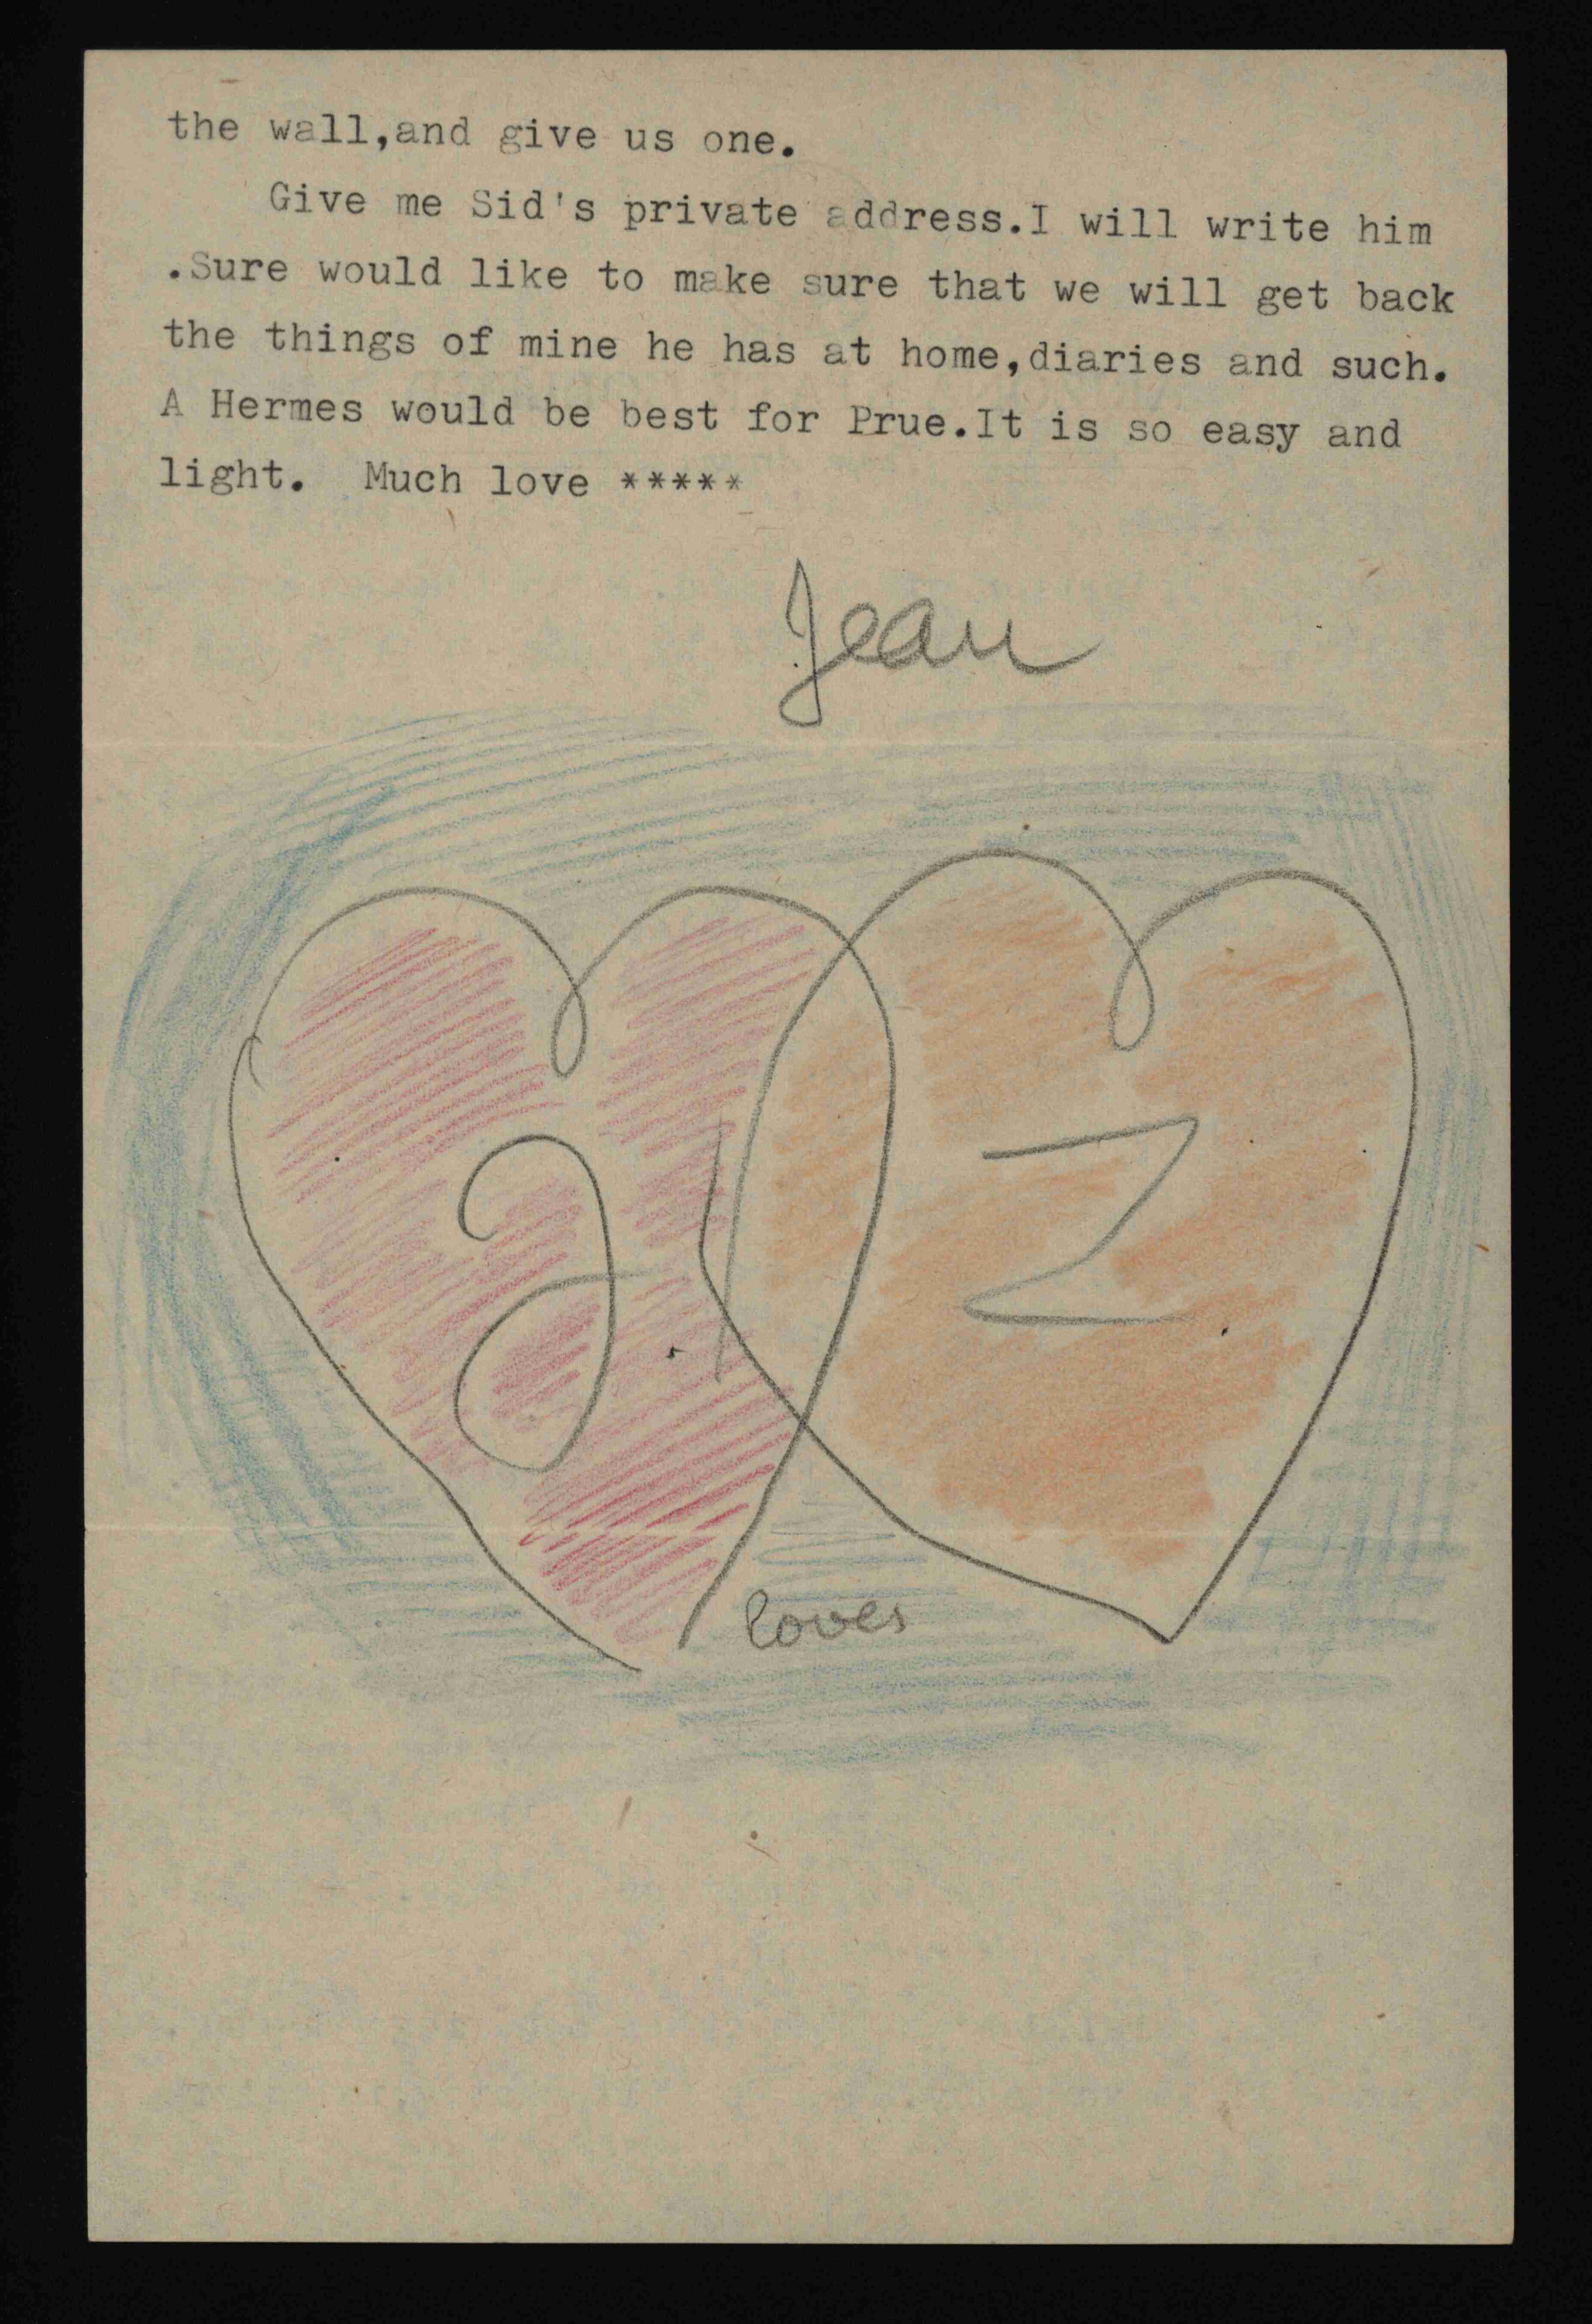 the wall,and give us one.
Give me Sid's private address.I will write him
.Sure would like to make sure that we will get back
the things of mine he has at home,diaries and such.
A Hermes would be best for Prue.It is so easy and
light. Much love *****
Jean
J Z
loves